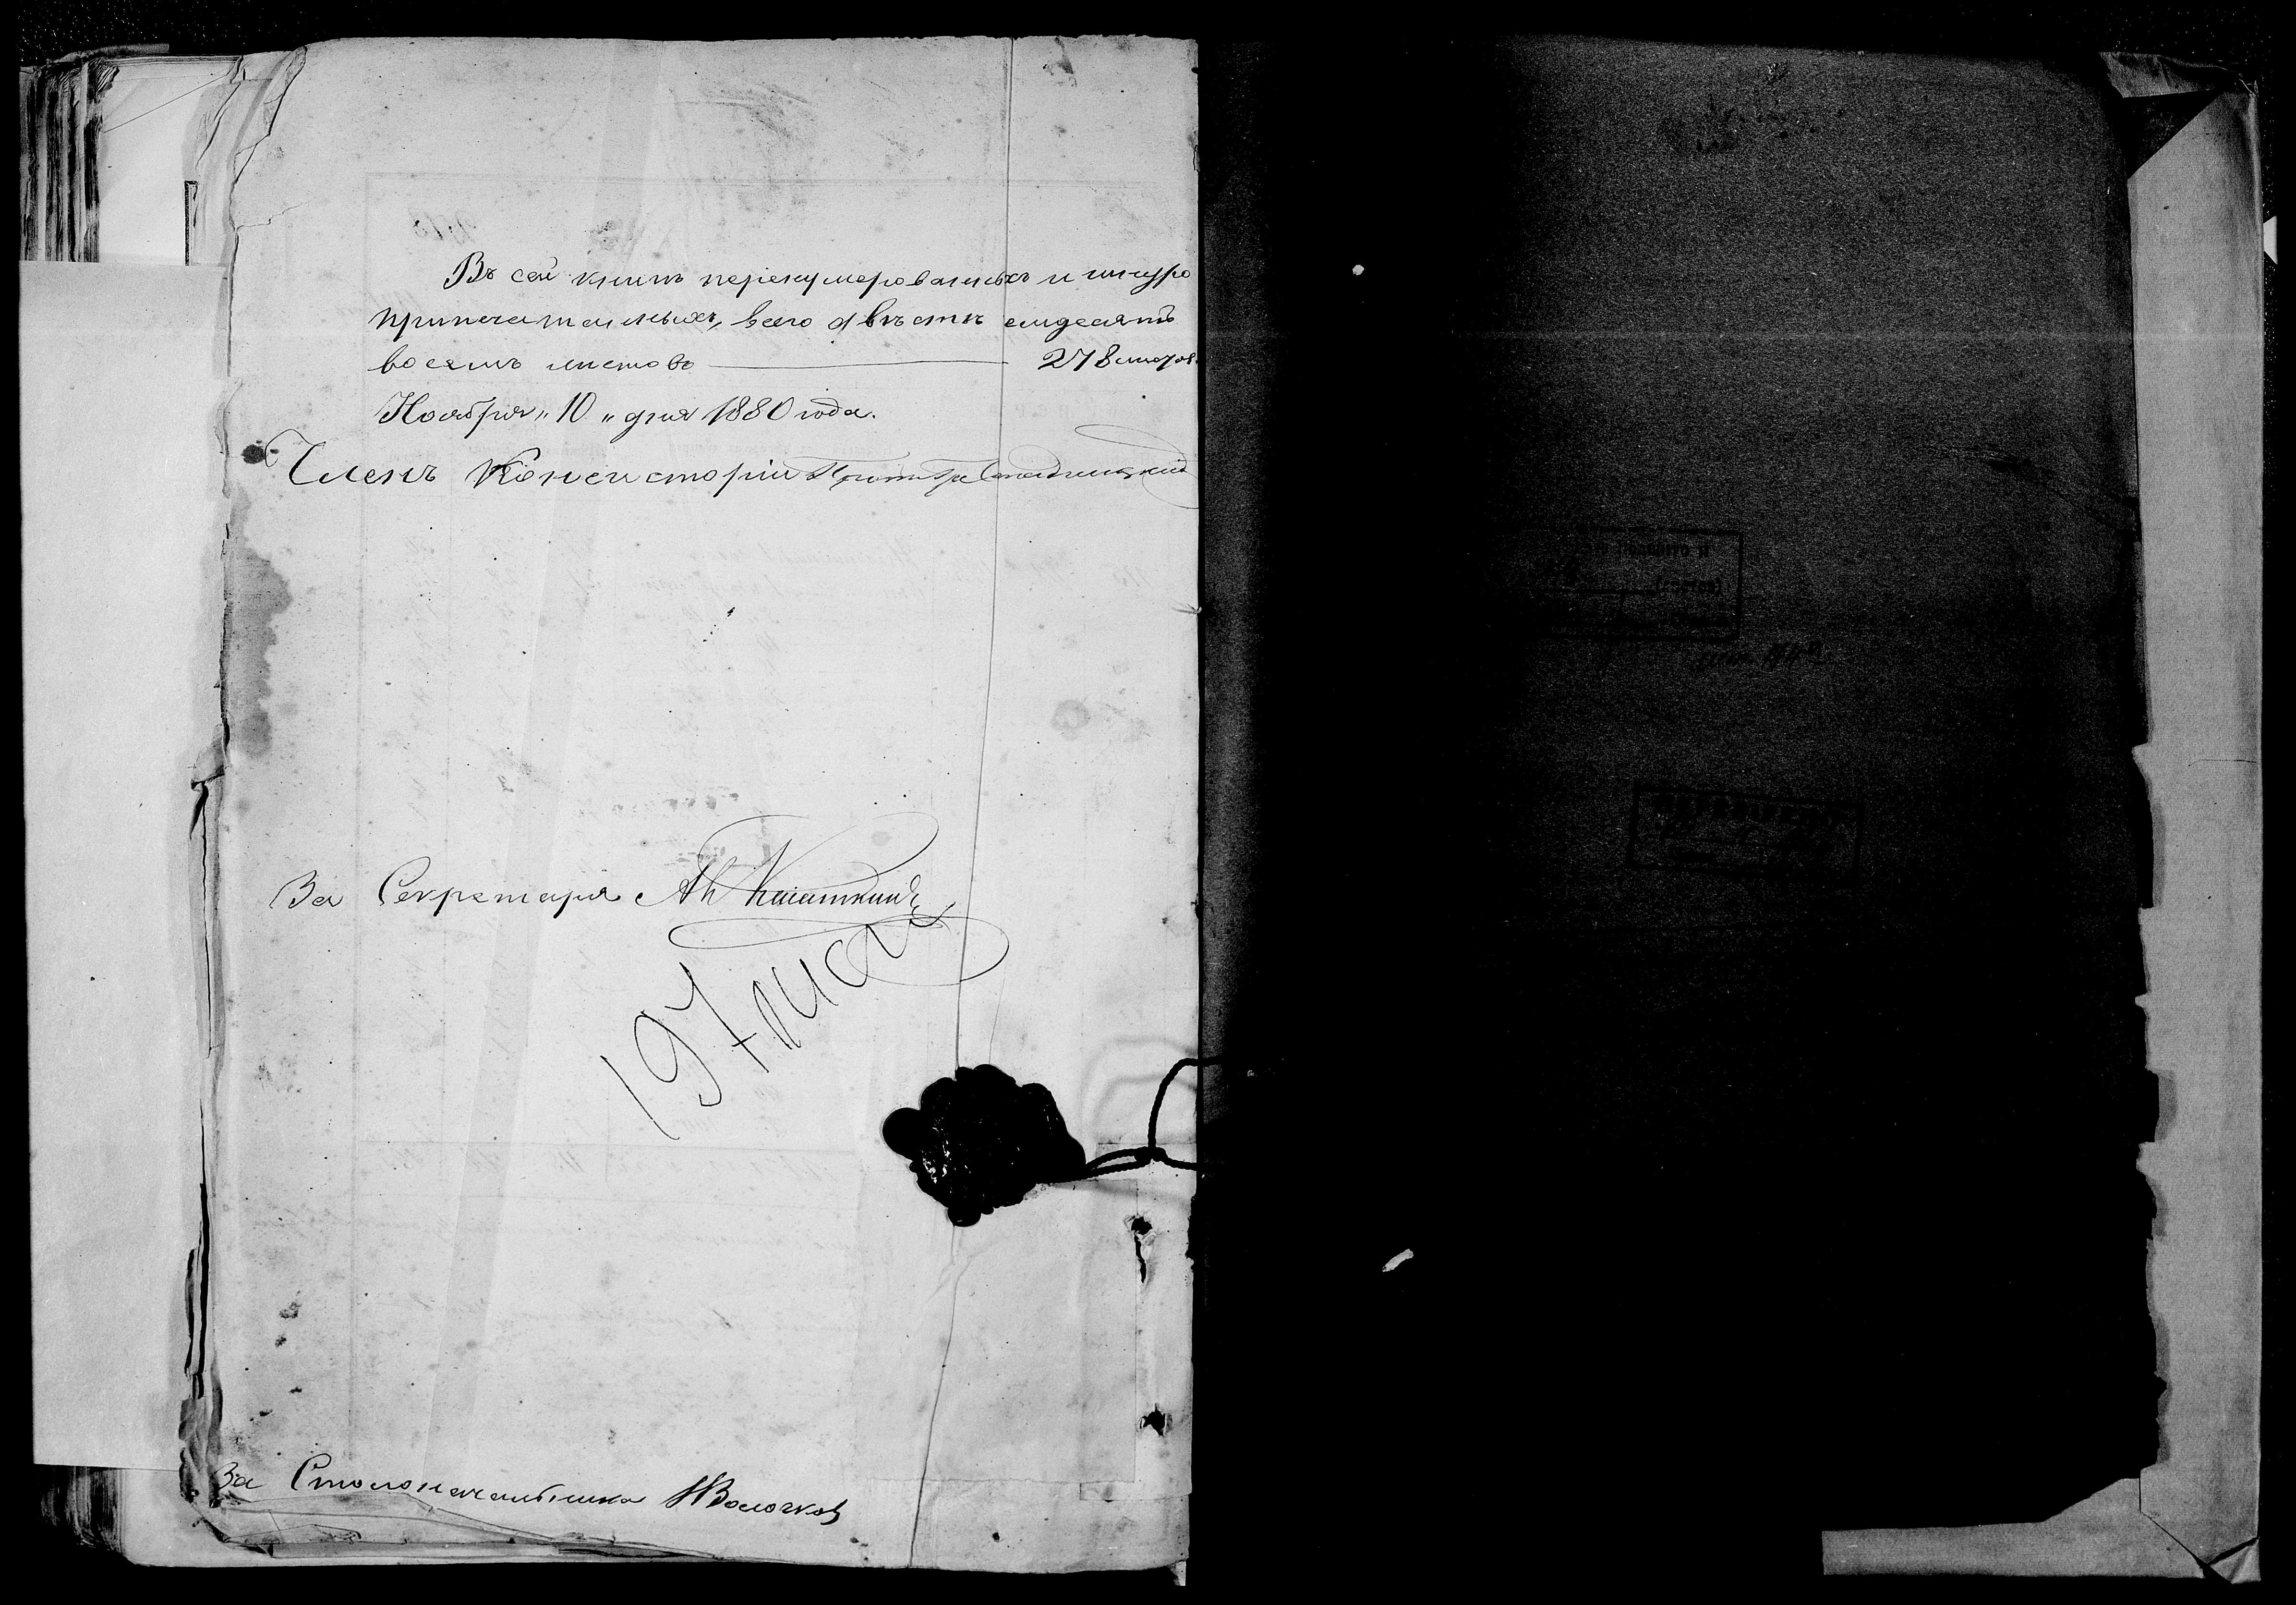 Въ сей книгѣ перенумерованныхъ и шнуро
припечатанныхъ, всего двѣсти семдесятъ
восемь листовъ 278 листов.
Ноября „10„ дня 1880 года.
Членъ Консисторіи
За Секретаря
197 лист
За Столоначальника Волочков